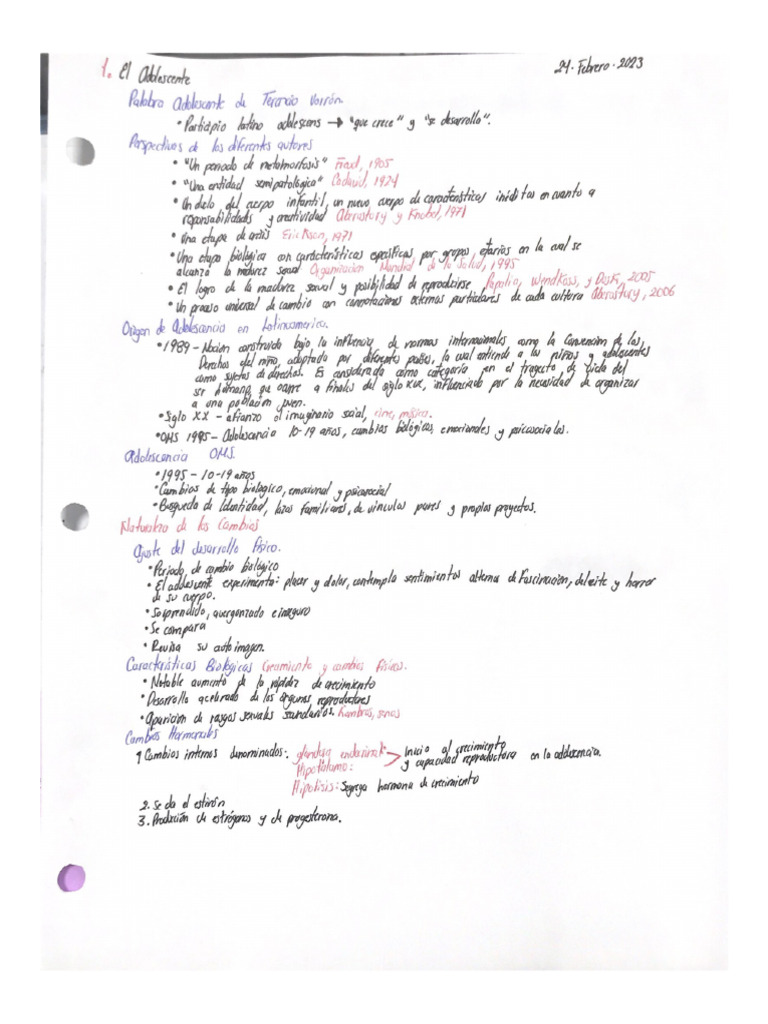 1. El Adolescente
24 · Febrero · 2023
Palabra Adolescente de Terencio Varrón.
• Participio latino adolescens → "que crece" y "se desarrollo".
Perspectivas de los diferentes autores
• "Un periodo de metamorfosis" Freud, 1905
• "Una entidad semipatológica" 1924
• Un duelo del cuerpo infantil, un nuevo cuerpo de características ineditas en cuanto a
responsabilidades y creatividad Aberastury y Knobel, 1971
• Una etapa de crisis Erickson, 1971
• Una etapa biológica con características específicas por grupos etarios en la cual se
alcanza la madurez sexual Organizacion Mundial de la Salud, 1995
• El logro de la madurez sexual y posibilidad de reproducirse, Papalia, Wendkoss, y Dosk, 2005
• Un proceso universal de cambio con connotaciones externas particulares de cada cultura Aberastury, 2006
Origen de Adolescencia en Latinoamerica.
• 1989 – Noción construida bajo la influencia de normas internacionales como la Convención de los
Derechos del niño, adoptada por diferentes países, la cual entiende a los niños y adolescentes
como sujetos de derechos. Es considerada como categoría en el trayecto de vida del
ser humano, que ocurre a finales del siglo XIX, influenciado por la necesidad de organizar
a una población joven.
• Siglo XX – afianzo el imaginario social, cine, música.
• OMS 1995 – Adolescencia 10-19 años, cambios biológicos, emocionales y psicosociales.
Adolescencia OMS.
• 1995 – 10-19 años
• Cambios de tipo biologico, emocional y psicosocial
• Busqueda de Identidad, lazos familiares, de vinculos pares y propios proyectos.
Naturaleza de los Cambios
Ajuste del desarrollo físico.
• Periodo de cambio biológico
• El adolescente experimenta: placer y dolor, contempla sentimientos alternos de fascinacion, deleite y horror
de su cuerpo.
• Sorprendido, avergonzado e inseguro
• Se compara
• Revisa su auto imagen.
Características Biologicas Crecimiento y cambios físicos.
• Notable aumento de la rápidez de crecimiento
• Desarrollo acelerado de los órganos reproductores
• Aparicion de rasgos sexuales secundarios. Hombros, senos
Cambios Hormonales
1 Cambios internos denominados: glandula endocrina Inicio al crecimiento
Hipotálamo: y capacidad reproductora en la adolescencia.
Hipofisis: Segrega hormona de crecimiento
2. Se da el estirón
3. Producción de estrógenos y de progesterona.